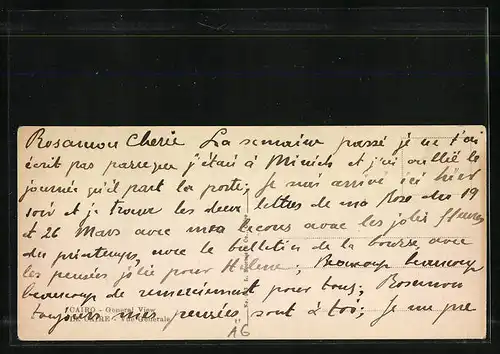 Rosamou Cherie La semaine passé je ne t'ai
écrit pas parceque j'étais à Minieh et j'ai oublié le
journée qu'il part la poste; Je suis arrivé ici hier
soir et je trouve les deux lettres de ma Rose du 19
et 26 Mars avec mes leçons avec les jolis fleures
du printemps, avec le bulletin de la bourse avec
les pensées jolie pour Helene; Beaucoup beaucoup
beaucoup de remerciement pour tous; Rosamou
toujours mes pensées sont à toi; Je me
CAIRO - General View
LE CAIRE - Vue Générale
AG